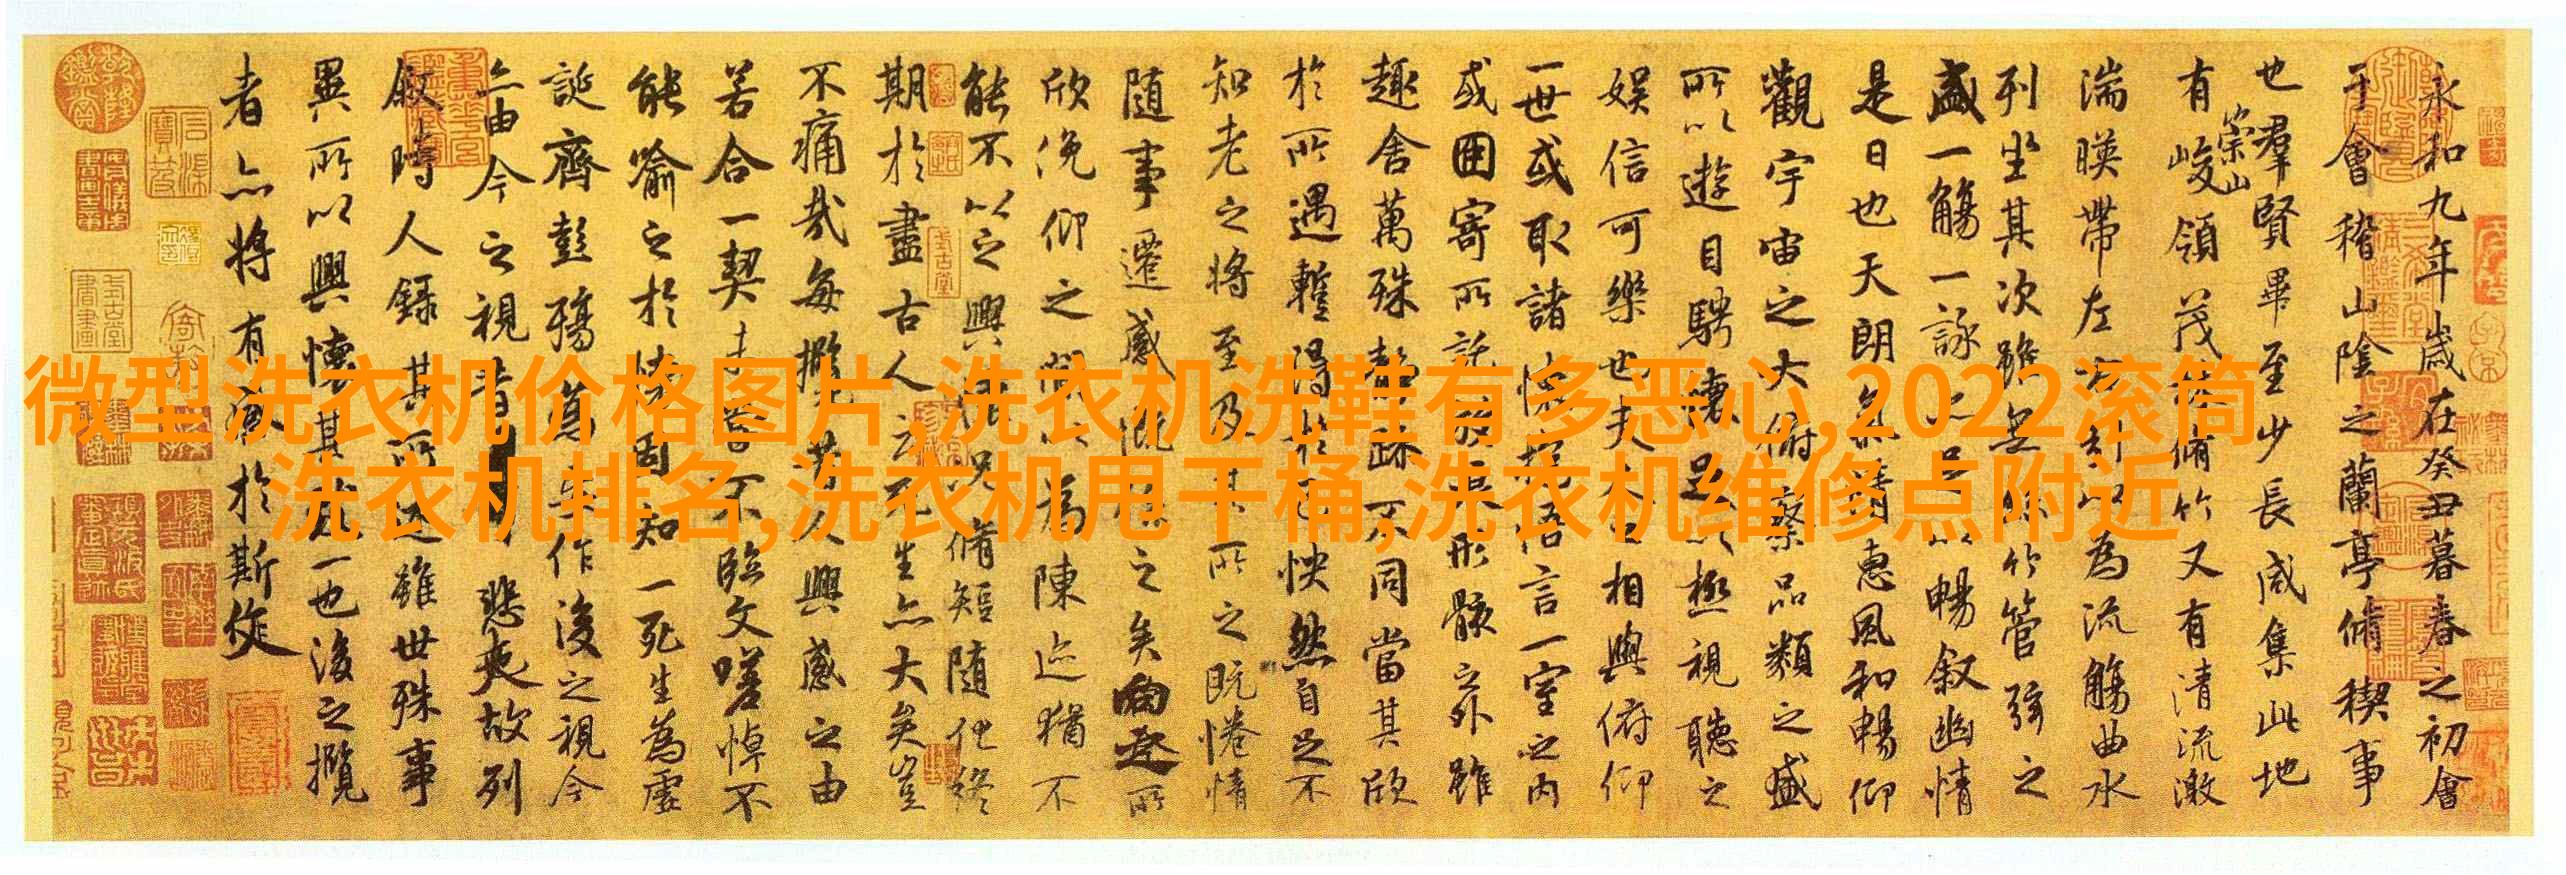 永和九年歲在癸丑暮春之初會
于會稽山陰之蘭亭脩稧事
也羣賢畢至少長咸集此地
有崇山峻領茂林脩竹又有清流激
湍暎帶左右引以為流觴曲水
列坐其次雖無絲竹管弦之
盛一觴一詠亦足以暢叙幽情
是日也天朗氣清惠風和暢仰
觀宇宙之大俯察品類之盛
所以遊目騁懷足以極視聽之
娛信可樂也夫人之相與俯仰
一世或取諸懷抱悟言一室之內
或因寄所託放浪形骸之外雖
趣舍萬殊靜躁不同當其欣
於所遇蹔得於己怏然自足不
知老之將至及其所之既惓情
隨事遷感慨係之矣向之所
欣俛仰之間以為陳迹猶不
能不以之興懷況脩短隨化終
期於盡古人云死生亦大矣豈
不痛哉每攬昔人興感之由
若合一契未嘗不臨文嗟悼不
能喻之於懷固知一死生為虛
誕齊彭殤為妄作後之視今
亦由今之視昔悲夫故列
叙時人錄其所述雖世殊事
異所以興懷其致一也後之攬
者亦將有感於斯文
微型洗衣机价格图片,洗衣机洗鞋有多恶心,2022滚筒
洗衣机排名,洗衣机甩干桶,洗衣机维修点附近